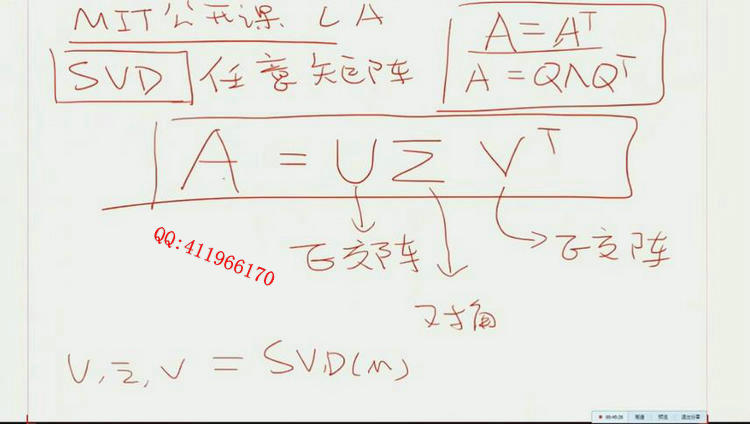 MIT公开课 LA
A=Aᵀ
SVD 任意矩阵
A=QΛQᵀ
A = UΣVᵀ
正交阵
正交阵
对角
QQ:411966170
U,Σ,V = SVD(M)